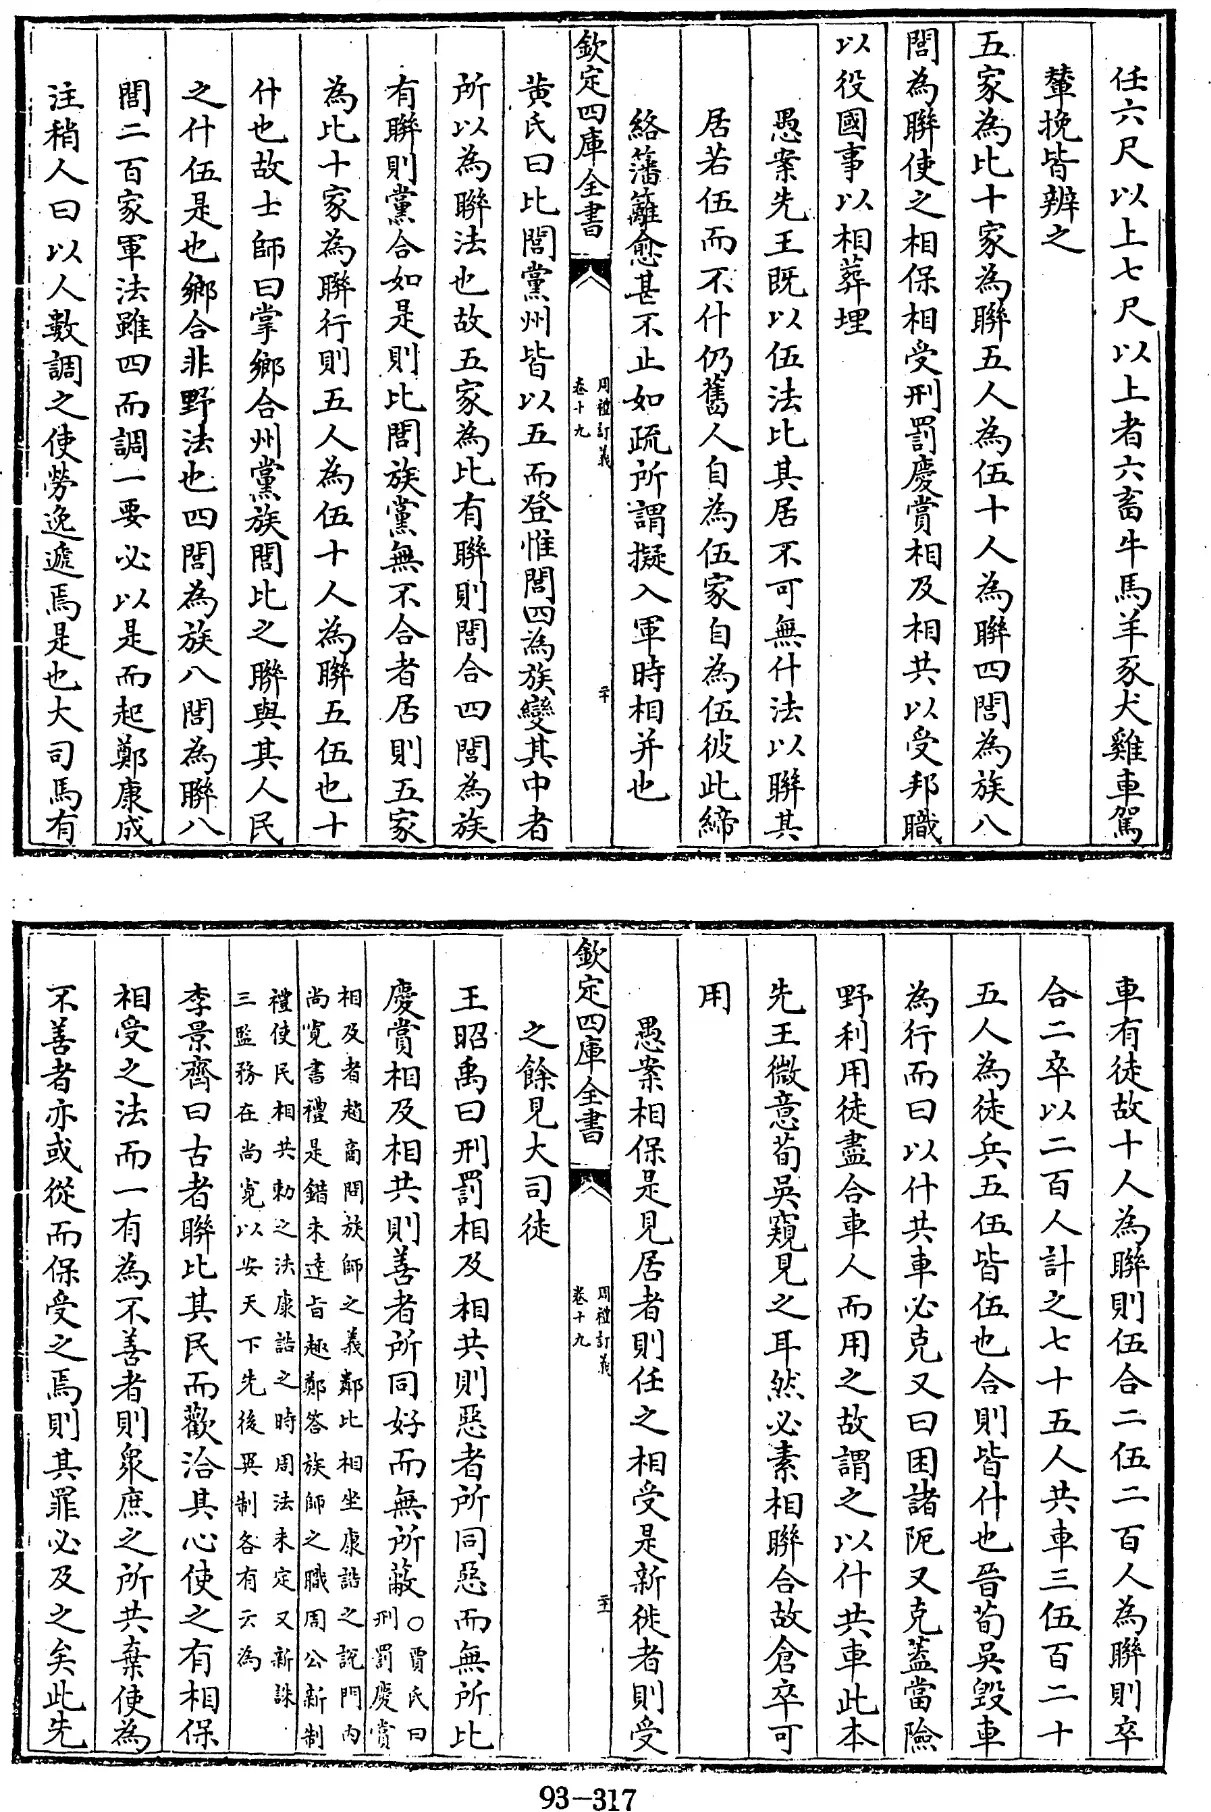 任六尺以上七尺以上者六畜牛馬羊豕犬雞車駕
輂挽皆辨之
五家為比十家為聯五人為伍十人為聯四閭為族八
閭為聯使之相保相受刑罰慶賞相及相共以受邦職
以役國事以相葬埋
愚案先王既以伍法比其居不可無什法以聯其
居若伍而不什仍舊人自為伍家自為伍彼此締
絡藩籬愈甚不止如疏所謂擬入軍時相并也
欽定四庫全書
周禮訂義
卷十九
二十
黄氏曰比閭黨州皆以五而登惟閭四為族變其中者
所以為聯法也故五家為比有聯則閭合四閭為族
有聯則黨合如是則比閭族黨無不合者居則五家
為比十家為聯行則五人為伍十人為聯五伍也十
什也故士師曰掌鄉合州黨族閭比之聯與其人民
之什伍是也鄉合非野法也四閭為族八閭為聯八
閭二百家軍法雖四而調一要必以是而起鄭康成
注稍人曰以人數調之使勞逸遞焉是也大司馬有
車有徒故十人為聯則伍合二伍二百人為聯則卒
合二卒以二百人計之七十五人共車三伍百二十
五人為徒兵五伍皆伍也合則皆什也晉荀吳毀車
為行而曰以什共車必克又曰困諸阨又克蓋當險
野利用徒盡合車人而用之故謂之以什共車此本
先王微意荀吳窺見之耳然必素相聯合故倉卒可
用
愚案相保是見居者則任之相受是新徙者則受
欽定四庫全書
周禮訂義
卷十九
二十一
之餘見大司徒
王昭禹曰刑罰相及相共則惡者所同惡而無所比
慶賞相及相共則善者所同好而無所蔽○賈氏曰
刑罰慶賞
相及者趙商問族師之義鄰比相坐康誥之說門内
尚寛書禮是錯未達旨趣鄭答族師之職周公新制
禮使民相共勑之法康誥之時周法未定又新誅
三監務在尚寛以安天下先後異制各有云為
李景齊曰古者聯比其民而歡洽其心使之有相保
相受之法而一有為不善者則衆庶之所共棄使為
不善者亦或從而保受之焉則其罪必及之矣此先
93-317